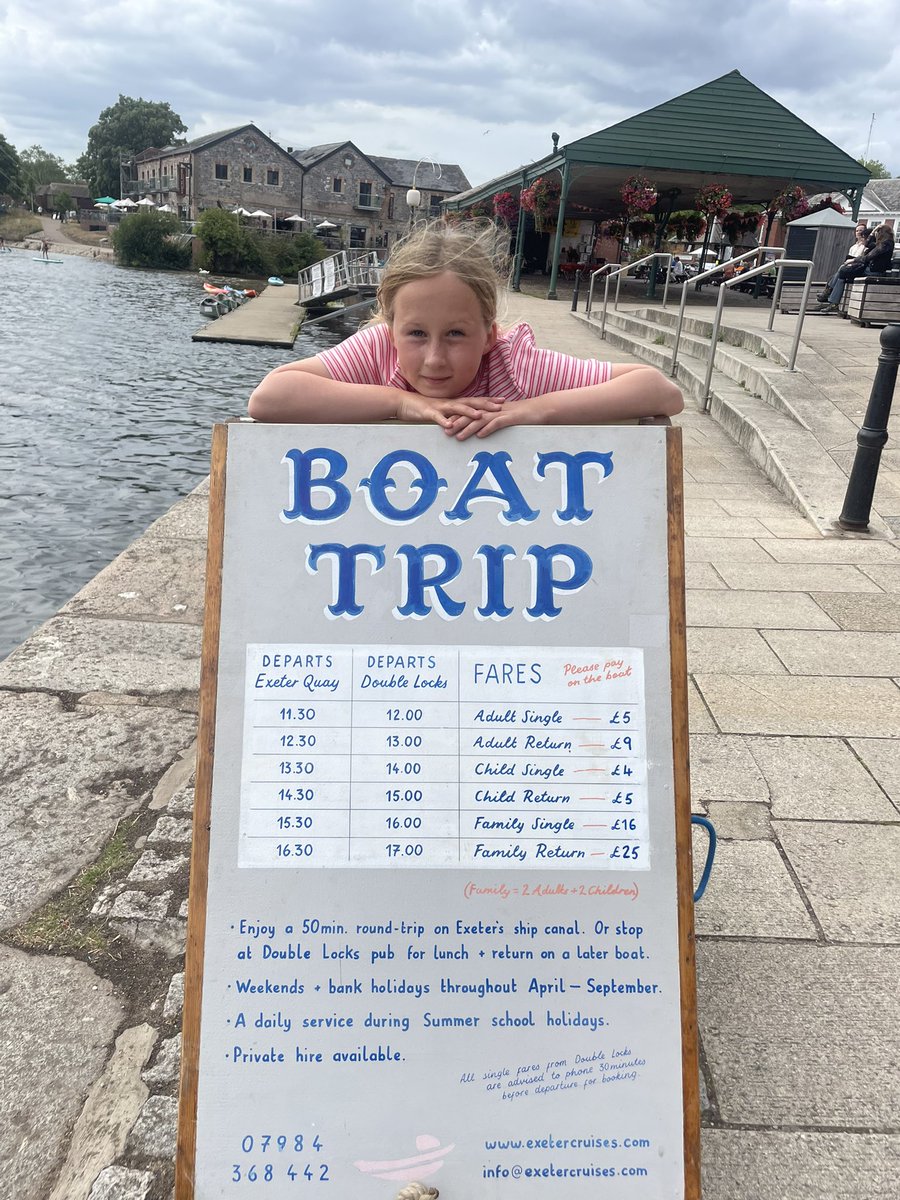 BOAT
TRIP
DEPARTS Exeter Quay DEPARTS Double Locks FARES Please pay on the boat
11.30 12.00 Adult Single — £5
12.30 13.00 Adult Return — £9
13.30 14.00 Child Single — £4
14.30 15.00 Child Return — £5
15.30 16.00 Family Single — £16
16.30 17.00 Family Return — £25
(Family = 2 Adults + 2 Children)
· Enjoy a 50min. round-trip on Exeter's ship canal. Or stop
at Double Locks pub for lunch + return on a later boat.
· Weekends + bank holidays throughout April – September.
· A daily service during Summer school holidays.
· Private hire available.
All single fares from Double Locks
are advised to phone 30 minutes
before departure for booking.
07984
368 442
www.exetercruises.com
info@exetercruises.com